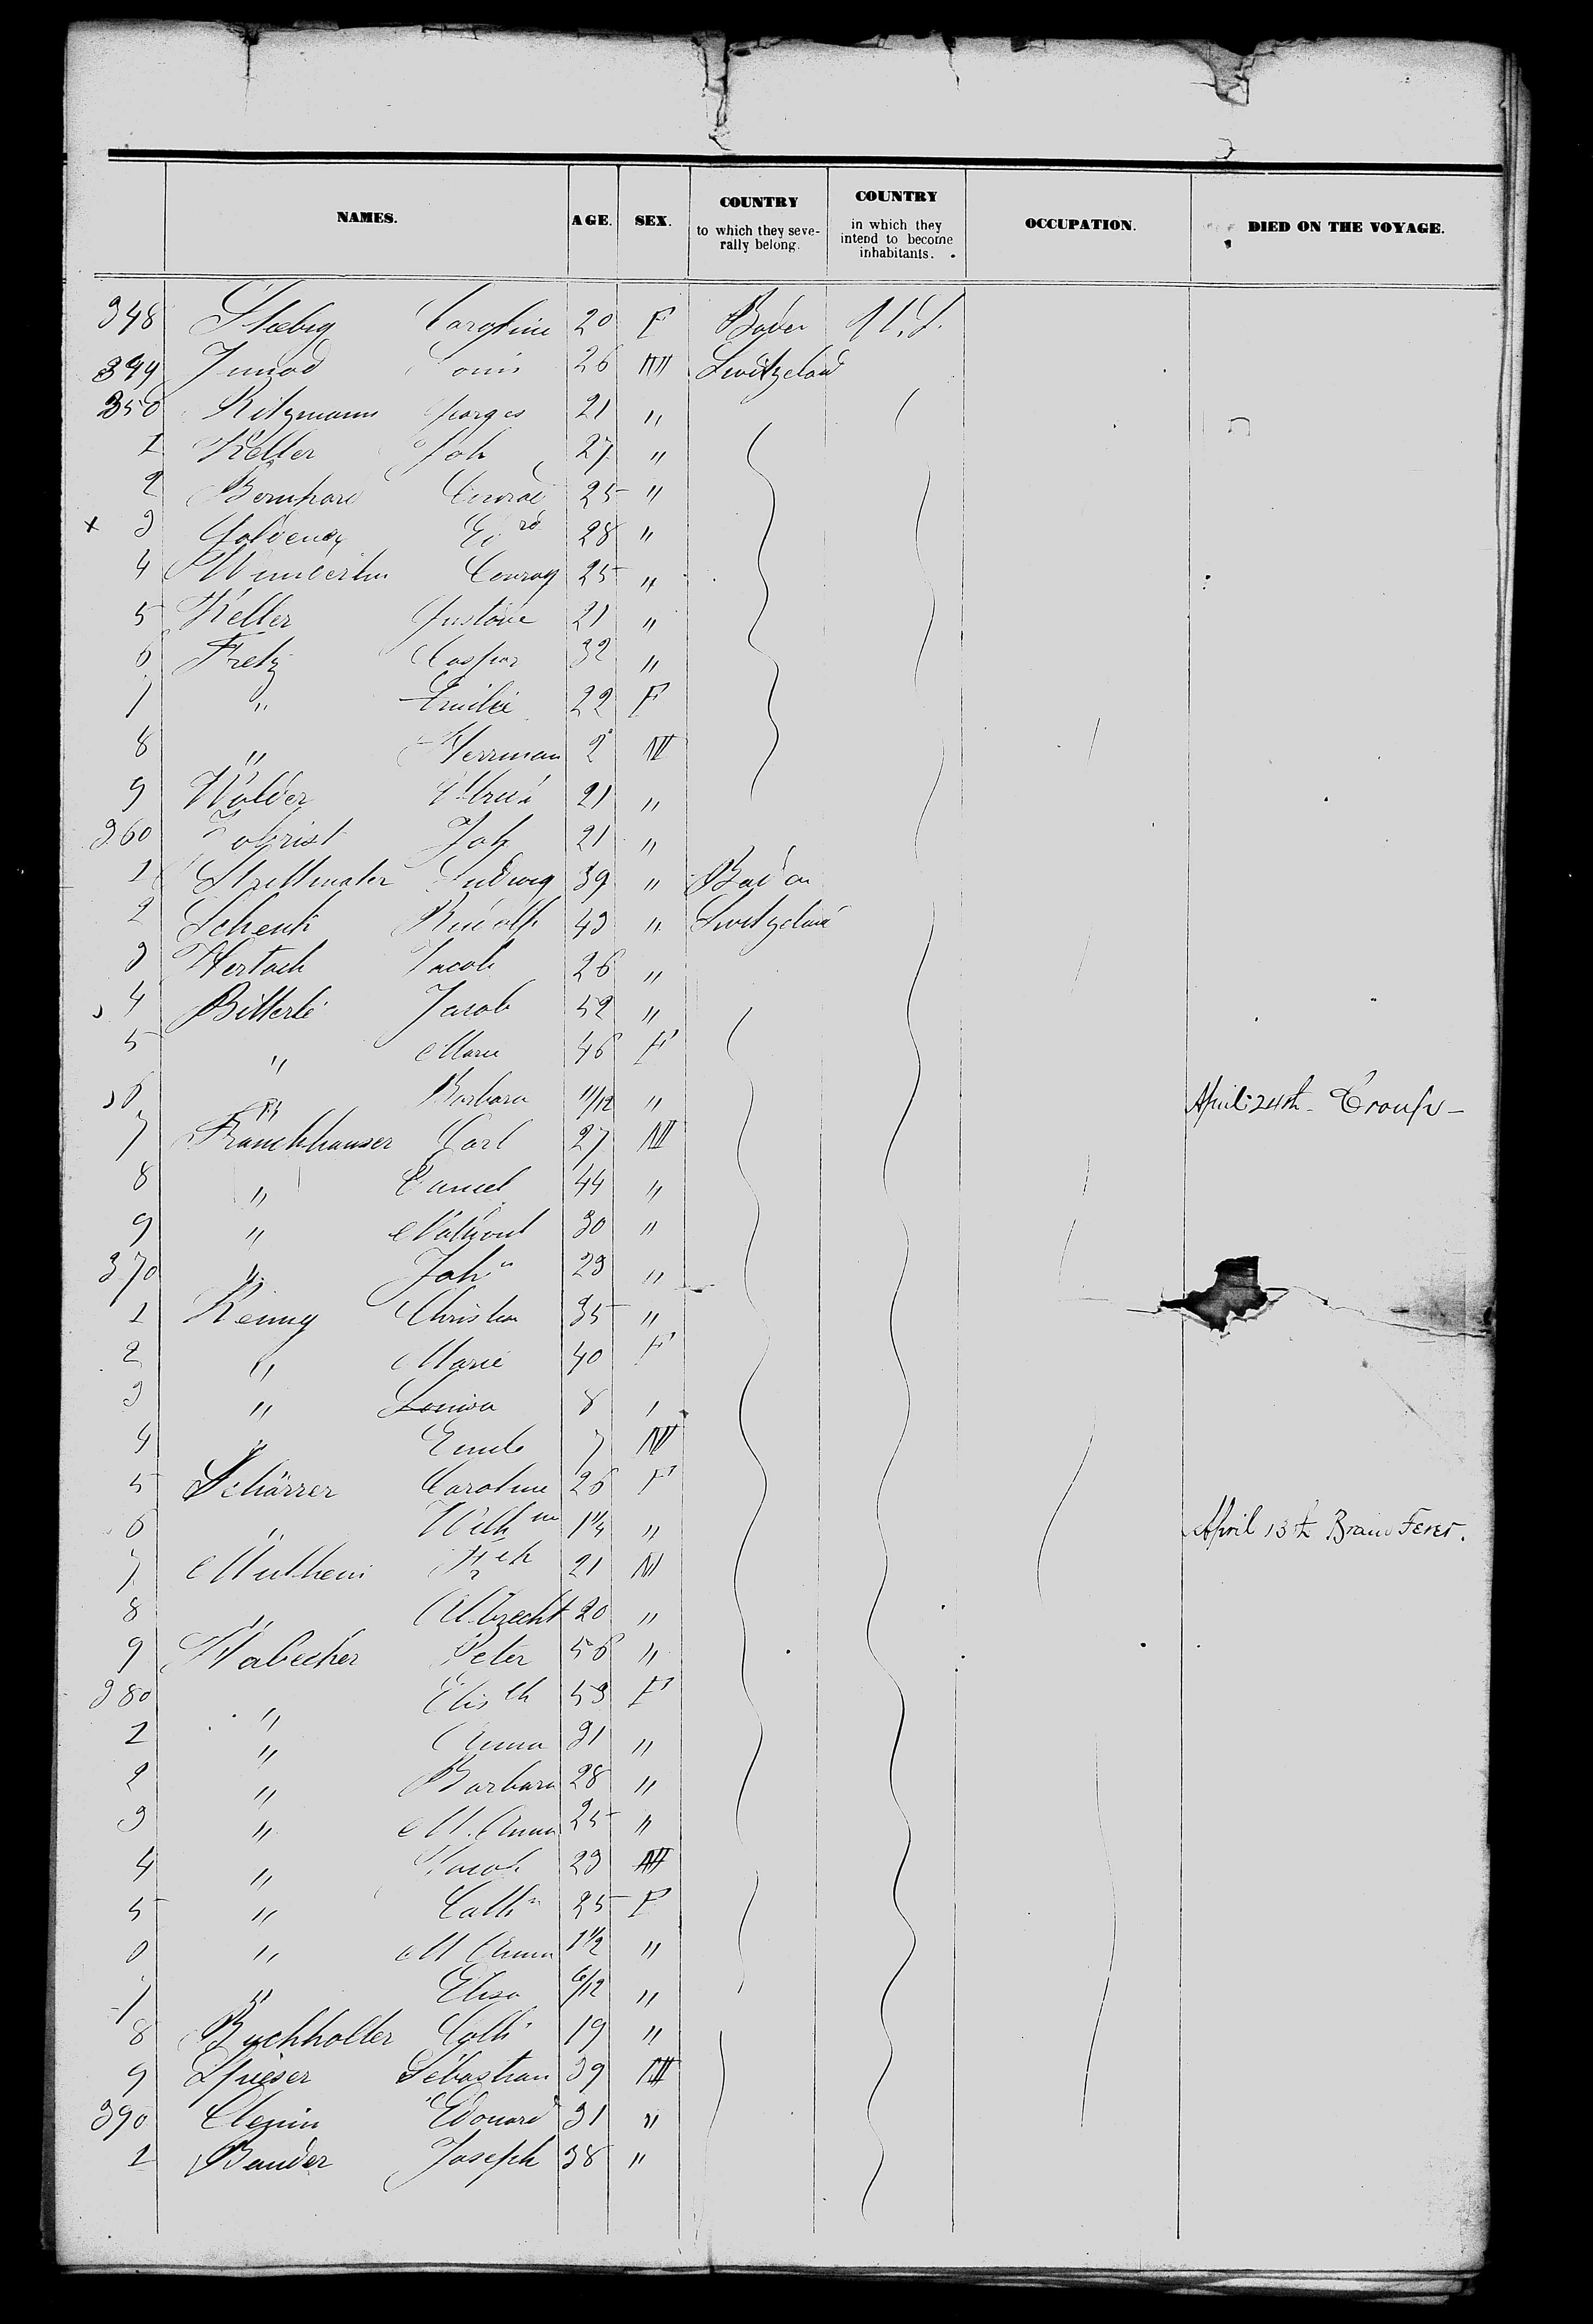 NAMES. AGE. SEX. COUNTRY to which they severally belong. COUNTRY in which they intend to become inhabitants. OCCUPATION. DIED ON THE VOYAGE.
348 Caroline 20 F Baden U.S.
349 Junod Louis 26 M Switzeland
350 Ritzmann Georges 21 "
1 Keller Joh 27 "
2 Bernhard Conrad 25 "
x 3 28 "
4 Conrad 25 "
5 Keller Gustave 21 "
6 Fretz Caspar 32 "
7 " Emilie 22 F
8 " Herrman 2 M
9 Walder 21 "
360 Zobrist Joh 21 "
1 Strittmater Ludwig 39 " Baden
2 Schenk Rudolf 43 " Switzeland
3 Hertach Jacob 26 "
4 Bitterli Jacob 52 "
5 " Marie 46 F
6 " Barbara 11/12 " April 24th - Croup -
7 Franckhauser Carl 27 M
8 " 44 "
9 " 30 "
370 " Joh n 23 "
1 Kenny Christian 35 "
2 " Marie 40 F
3 " Louisa 8 "
4 " Emile 7 M
5 Schärrer Caroline 26 F
6 " Wilh m 1 1/4 " April 13th Brain Fever.
7 21 M
8 " Albrecht 20 "
9 Habecker Peter 56 "
380 " Elis th 53 F
1 " Anna 31 "
2 " Barbara 28 "
3 " M. Anna 25 "
4 " Jacob 23 M
5 " Cath n 25 F
6 " M Anna 1 1/2 "
7 " Elisa 6/12 "
8 Buchholter Cath 19 "
9 Spieser Sébastian 39 M
390 Clemin Edouard 31 "
1 Bander Joseph 38 "